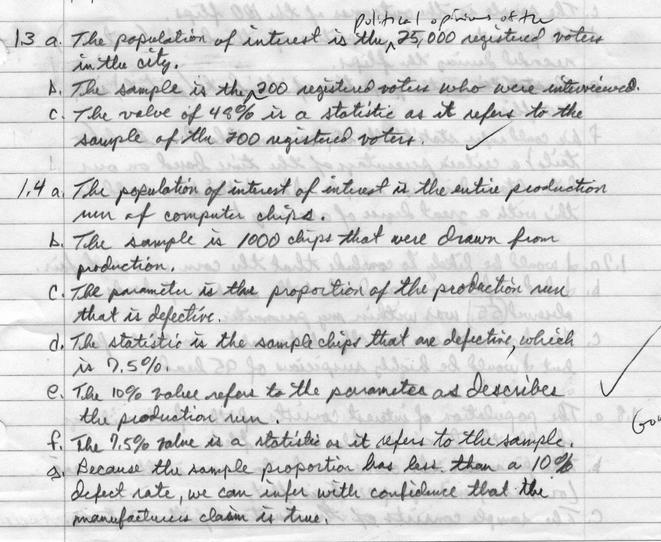 political opinions of the
1.3 a. The population of interest is the ^ 25,000 registered voters
in the city.
b. The sample is the ^ 200 registered voters who were interviewed.
c. The value of 48% is a statistic as it refers to the
sample of the 200 registered voters.
1.4 a. The population of interest of interest is the entire production
run of computer chips.
b. The sample is 1000 chips that were drawn from
production.
c. The parameter is the proportion of the production run
that is defective.
d. The statistic is the sample chips that are defective, which
is 7.5%.
e. The 10% value refers to the parameter as describes
the production run.
f. The 7.5% value is a statistic as it refers to the sample.
g. Because the sample proportion has less than a 10%
defect rate, we can infer with confidence that the
manufacturers claim is true.